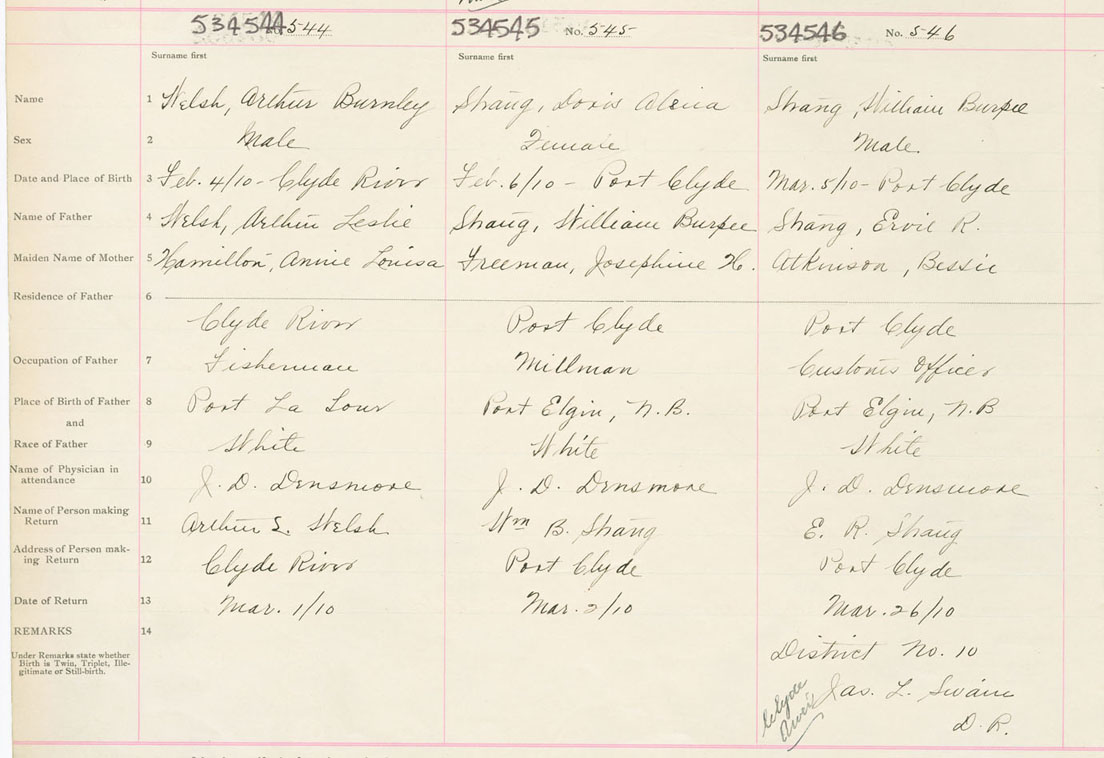 534544 No. 544 534545 No. 545 534546 No. 546
Surname first Surname first Surname first
Name 1 Welsh, Arthur Burnley Strang, Doris Alena Strang, William Burpee
Sex 2 Male Female Male.
Date and Place of Birth 3 Feb. 4/10 - Clyde River Feb. 6/10 - Port Clyde Mar. 5/10 - Port Clyde
Name of Father 4 Welsh, Arthur Leslie Strang, William Burpee Strang, Ervie R.
Maiden Name of Mother 5 Hamilton, Annie Louisa Freeman, Josephine H. Atkinson, Bessie
Residence of Father 6
Clyde River Port Clyde Port Clyde
Occupation of Father 7 Fisherman Millman Customs Officer
Place of Birth of Father 8 Port La Tour Port Elgin, N.B. Port Elgin, N.B
and
Race of Father 9 White White White
Name of Physician in
attendance 10 J. D. Densmore J. D. Densmore J. D. Densmore
Name of Person making
Return 11 Arthur L. Welsh Wm B. Strang E. R. Strang
Address of Person mak-
ing Return 12 Clyde River Port Clyde Port Clyde
Date of Return 13 Mar. 1/10 Mar. 2/10 Mar. 26/10
REMARKS 14
District No. 10
Under Remarks state whether
Birth is Twin, Triplet, Ille-
gitimate or Still-birth.
Jas. L. Swain
D. R.
Clyde
River